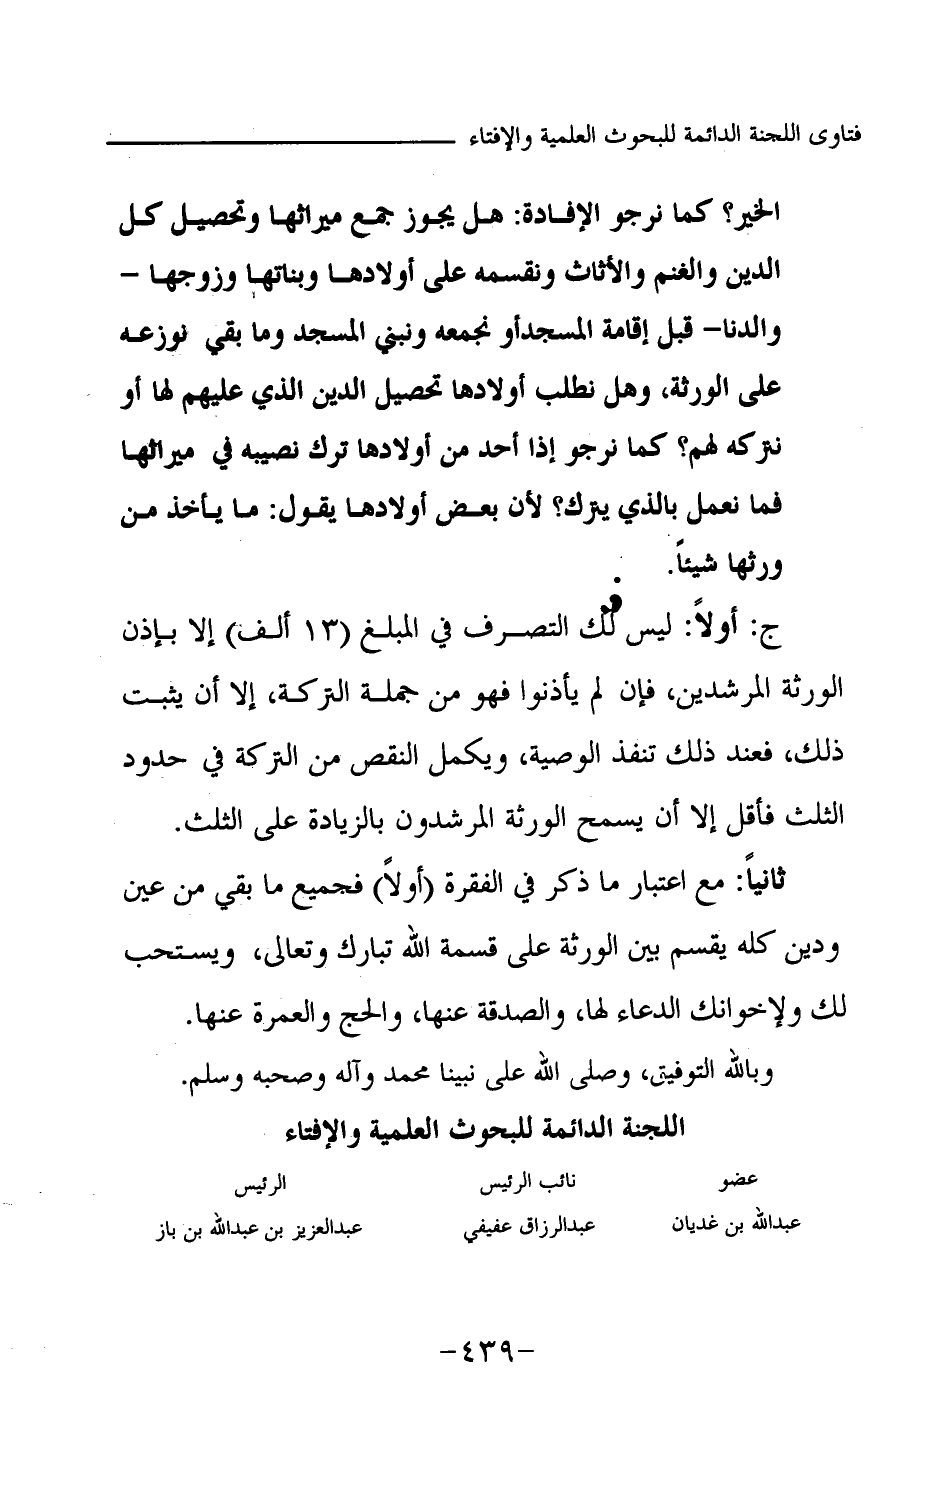 فتاوى اللجنة الدائمة للبحوث العلمية والإفتاء
الخير؟ كما نرجو الإفادة: هل يجوز جمع ميراثها وتحصيل كل
الدين والغنم والأثاث ونقسمه على أولادها وبناتها وزوجها –
والدنا– قبل إقامة المسجدأو نجمعه ونبني المسجد وما بقي نوزعه
على الورثة، وهل نطلب أولادها تحصيل الدين الذي عليهم لها أو
نتركه لهم؟ كما نرجو إذا أحد من أولادها ترك نصيبه في ميراثها
فما نعمل بالذي يترك؟ لأن بعض أولادها يقول: ما يأخذ من
ورثها شيئاً.
ج: أولاً: ليس لك التصرف في المبلغ (١٣ ألف) إلا بإذن
الورثة المرشدين، فإن لم يأذنوا فهو من جملة التركة، إلا أن يثبت
ذلك، فعند ذلك تنفذ الوصية، ويكمل النقص من التركة في حدود
الثلث فأقل إلا أن يسمح الورثة المرشدون بالزيادة على الثلث.
ثانياً: مع اعتبار ما ذكر في الفقرة (أولاً) فجميع ما بقي من عين
ودين كله يقسم بين الورثة على قسمة الله تبارك وتعالى، ويستحب
لك ولإخوانك الدعاء لها، والصدقة عنها، والحج والعمرة عنها.
وبالله التوفيق، وصلى الله على نبينا محمد وآله وصحبه وسلم.
اللجنة الدائمة للبحوث العلمية والإفتاء
عضو نائب الرئيس الرئيس
عبدالله بن غديان عبدالرزاق عفيفي عبدالعزيز بن عبدالله بن باز
–٤٣٩–